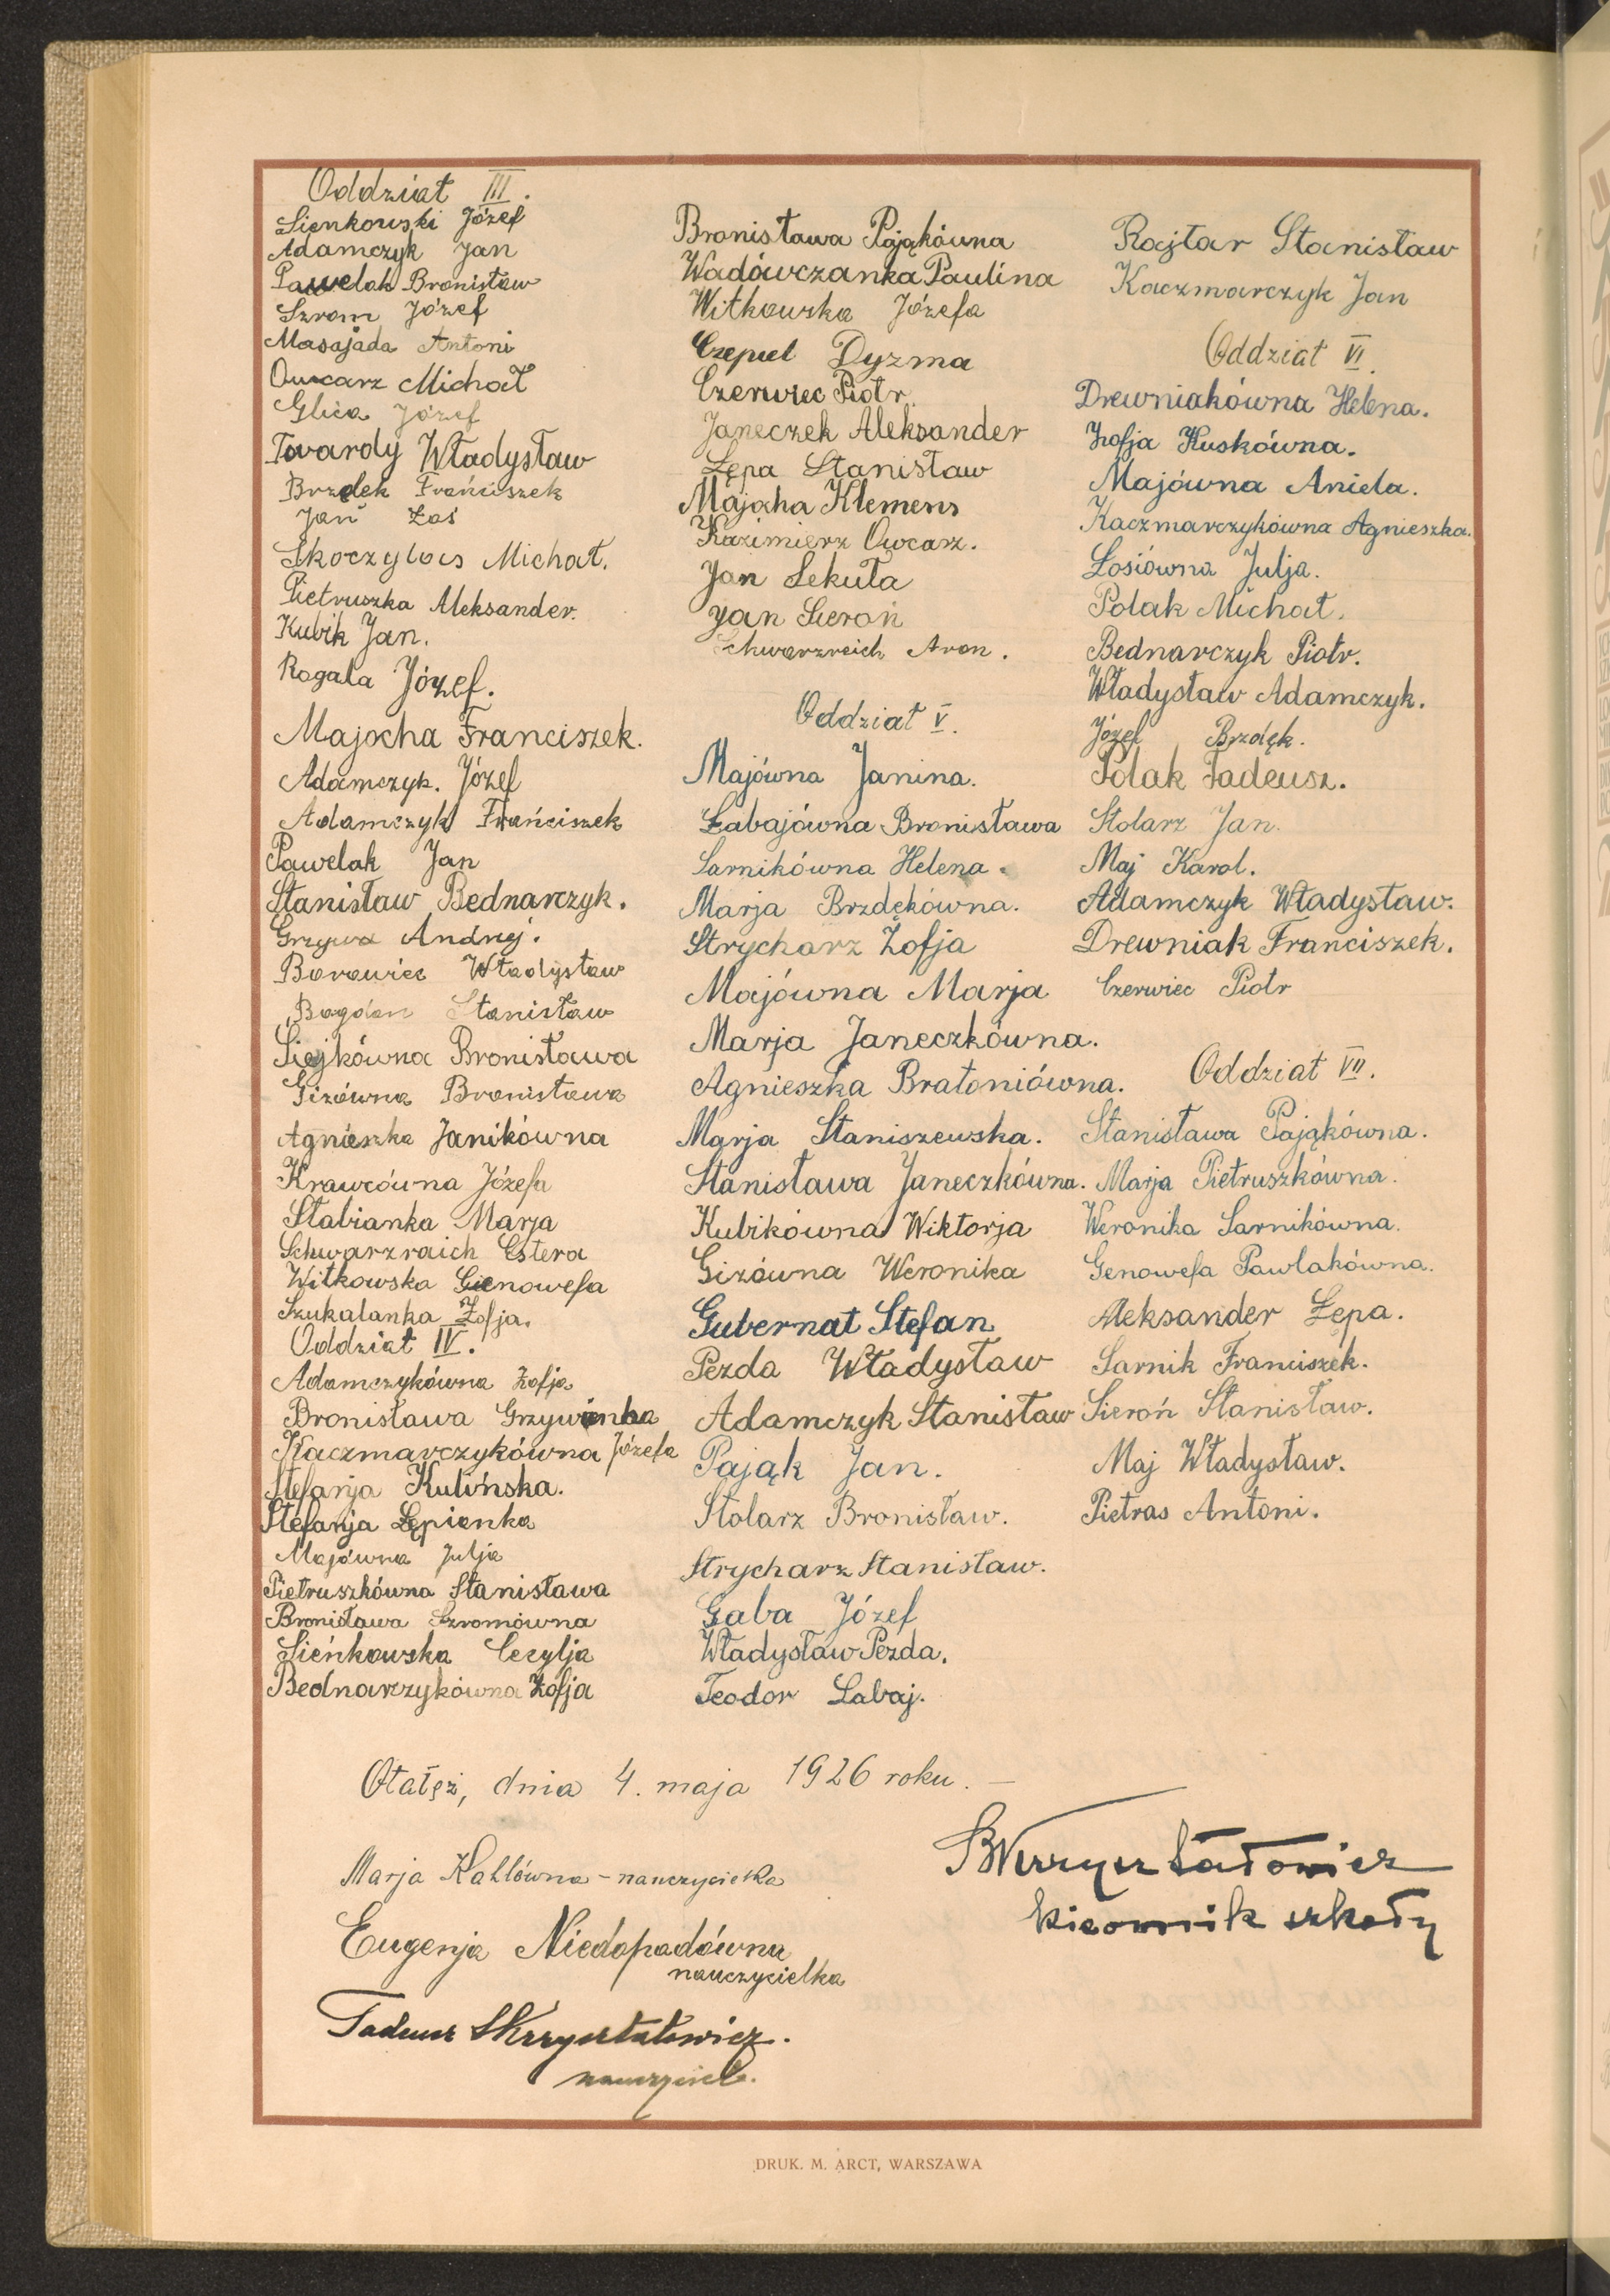 Oddział III.
Sienkowski Józef
Adamczyk Jan
Pawelak Bronisław
Szrom Józef
Masajada Antoni
Owcarz Michał
Glica Józef
Twardy Władysław
Brzdek Frańciszek
Jan Łoś
Skoczylas Michał.
Pietruszka Aleksander.
Kubik Jan.
Rogala Józef.
Majocha Franciszek.
Adamczyk. Józef
Adamczyk Frańciszek
Pawelak Jan
Stanisław Bednarczyk.
Grzywa Andrzej.
Borowiec Władysław
Bogdan Stanisław
Siejkówna Bronisława
Gizówna Bronisława
Agnieszka Janikówna
Krawcówna Józefa
Stabianka Marja
Schwarzraich Estera
Witkowska Gienowefa
Szukalanka Zofja.
Oddział IV.
Adamczykówna Zofja
Bronisława Grzywianka
Kaczmarczykówna Józefa
Stefanja Kulińska.
Stefanja Łępianka
Majówna Julja
Pietruszkówna Stanisława
Bronisława Szromówna
Sieńkowska Cecylja
Bednarczykówna Zofja
Bronisława Pająkówna
Wadówczanka Paulina
Witkowska Józefa
Czepiel Dyzma
Czerwiec Piotr.
Janeczek Aleksander
Łępa Stanisław
Majocha Klemens
Kazimierz Owcarz.
Jan Sekuła
Jan Sieroń
Schwarzreich Aron.
Oddział V.
Majówna Janina.
Łabajówna Bronisława
Sarnikówna Helena.
Marja Brzdękówna.
Strycharz Zofja
Majówna Marja
Marja Janeczkówna.
Agnieszka Bratoniówna.
Marja Staniszewska.
Stanisława Janeczkówna.
Kubikówna Wiktorja
Gizówna Weronika
Gubernat Stefan
Pezda Władysław
Adamczyk Stanisław
Pająk Jan.
Stolarz Bronisław.
Strycharz Stanisław.
Gaba Józef
Władysław Pezda.
Teodor Łabaj.
Rajtar Stanisław
Kaczmarczyk Jan
Oddział VI.
Drewniakówna Helena.
Zofja Kuskówna.
Majówna Aniela.
Kaczmarczykówna Agnieszka.
Łosiówna Julja.
Polak Michał.
Bednarczyk Piotr.
Władysław Adamczyk.
Józef Brzdęk.
Polak Tadeusz.
Stolarz Jan.
Maj Karol.
Adamczyk Władysław.
Drewniak Franciszek.
Czerwiec Piotr
Oddział VII.
Stanisława Pająkówna.
Marja Pietruszkówna.
Weronika Sarnikówna.
Genowefa Pawlakówna.
Aleksander Łępa.
Sarnik Franciszek.
Sieroń Stanisław.
Maj Władysław.
Pietras Antoni.
Otałęż, dnia 4. maja 1926 roku. —
Marja Kahlówna - nauczycielka
Eugenja Niedopadówna
nauczycielka
Tadeusz Skrzyształowicz.
nauczyciel.
kierownik szkoły
DRUK. M. ARCT, WARSZAWA